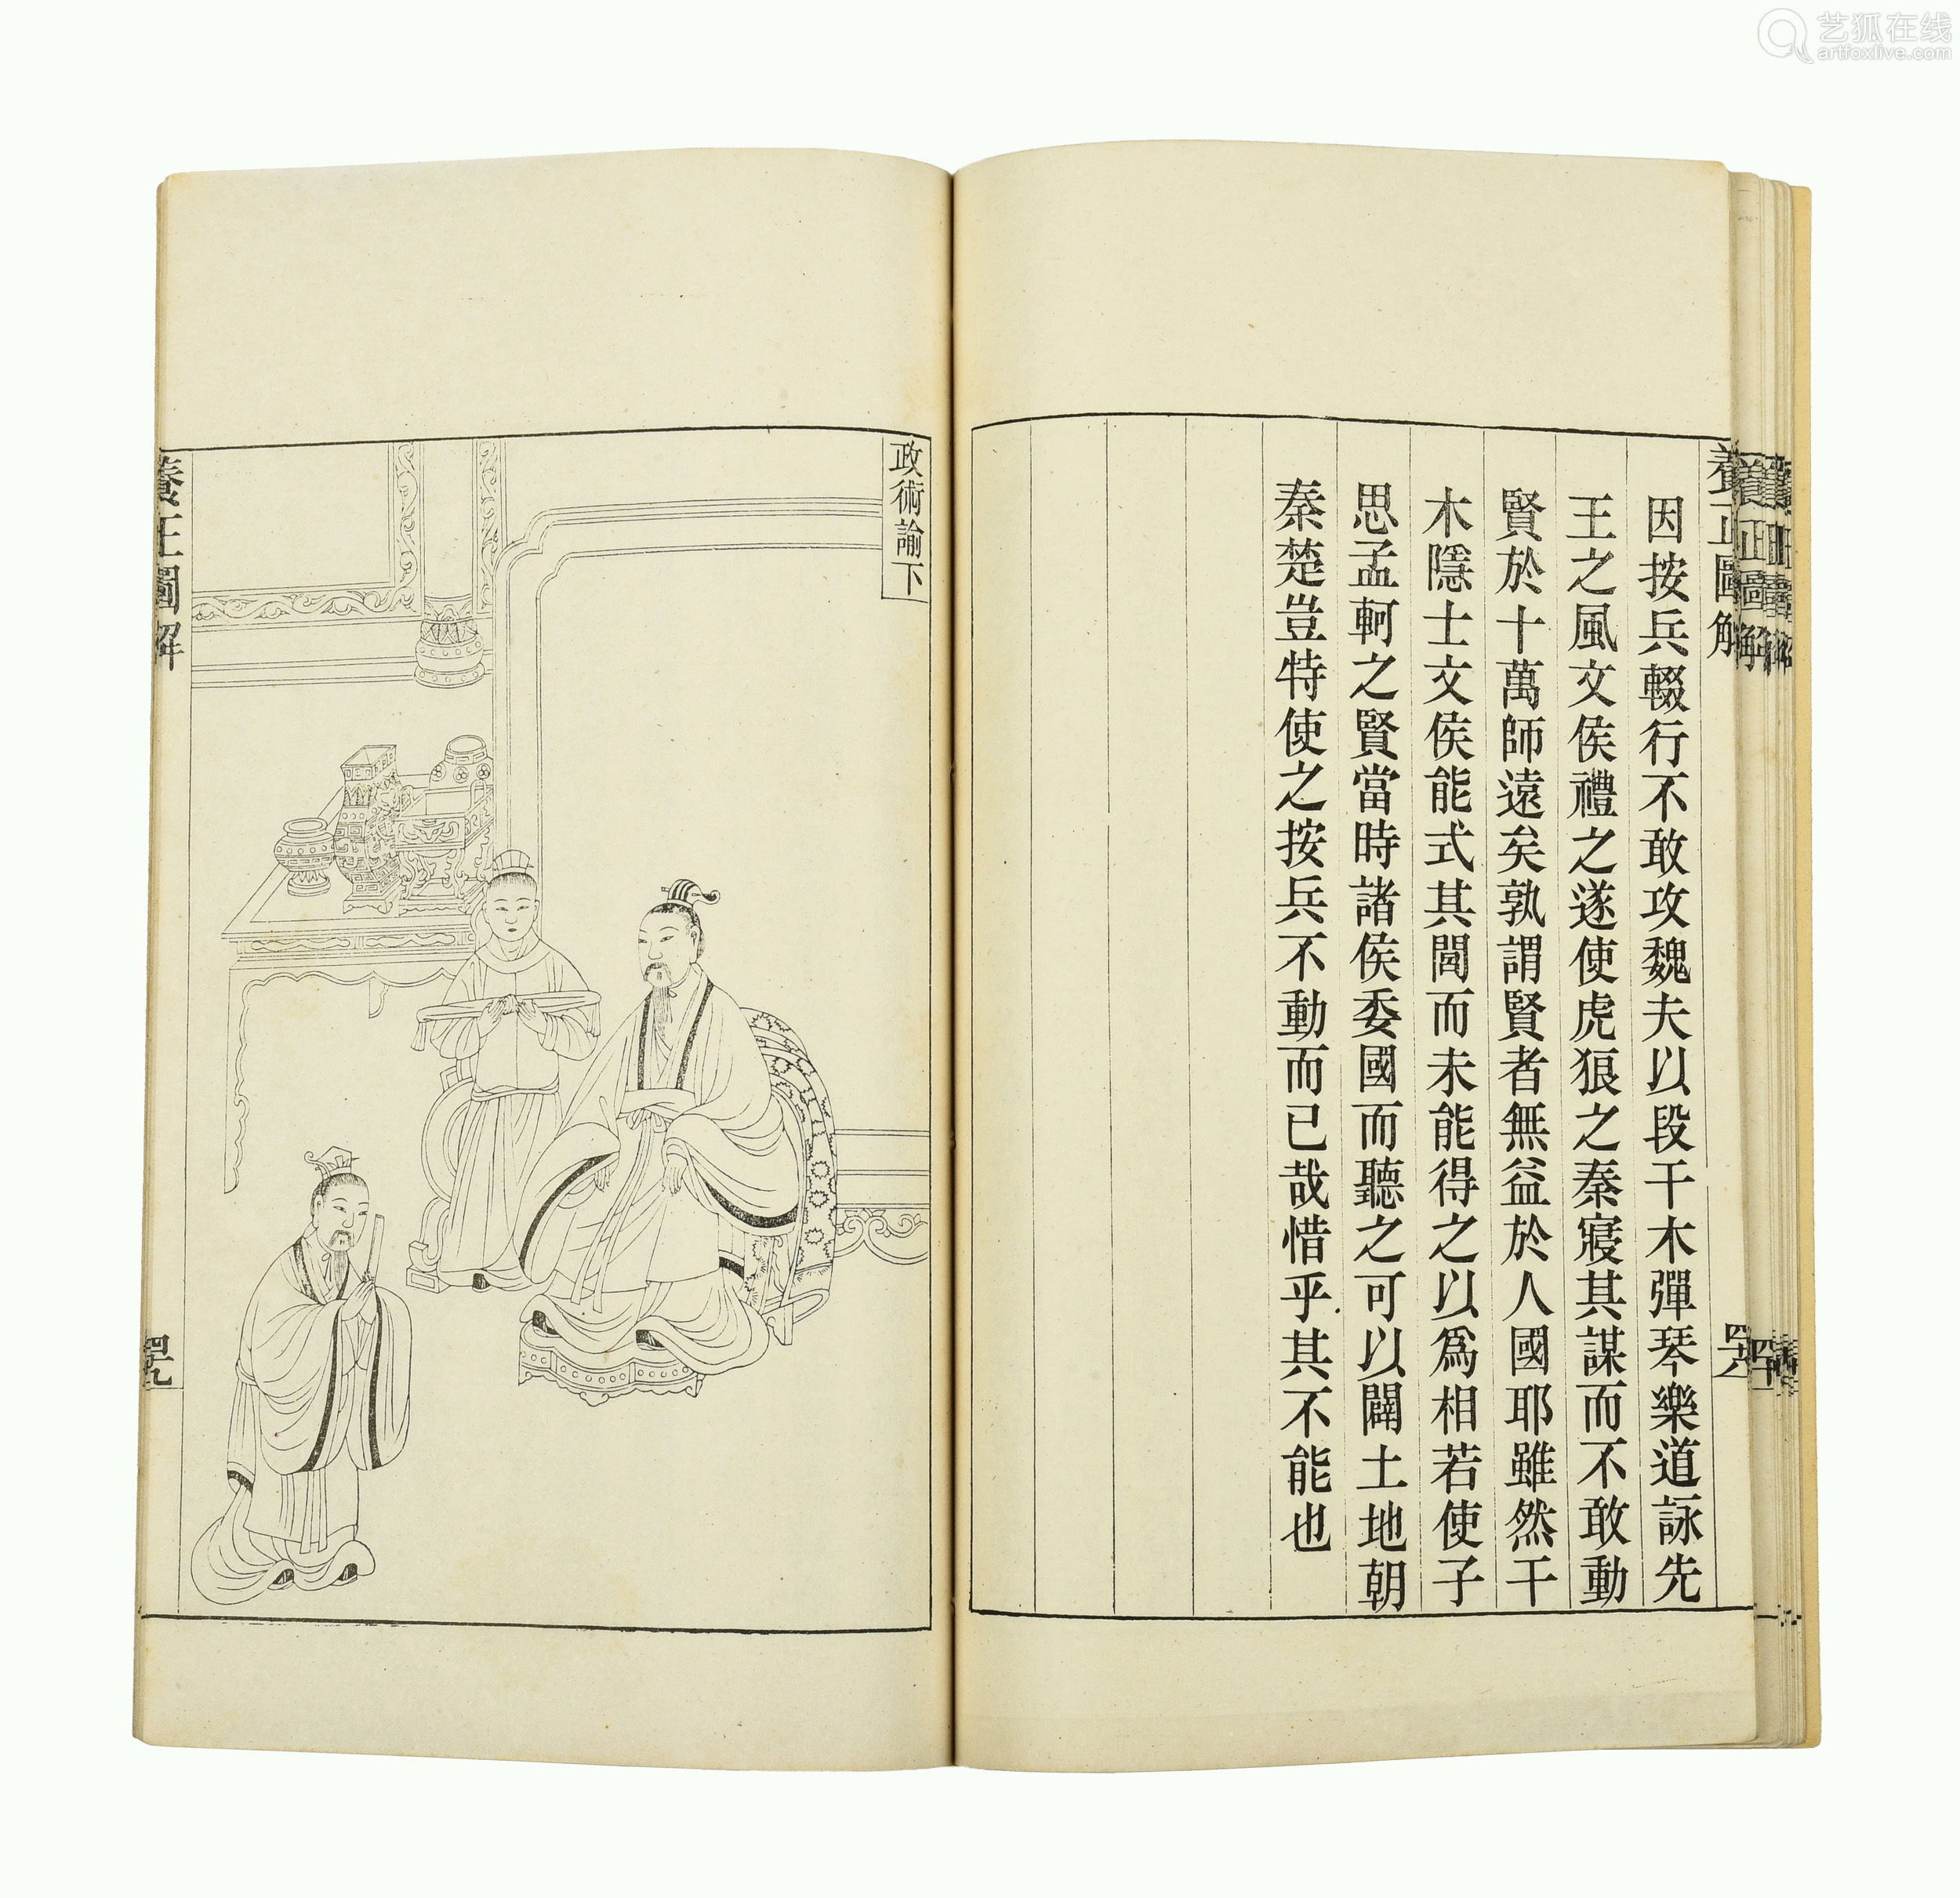 艺狐在线
artfoxlive.com
養正圖解
因按兵輟行不敢攻魏夫以段干木彈琴樂道詠先
王之風文侯禮之遂使虎狼之秦寢其謀而不敢動
賢於十萬師遠矣孰謂賢者無益於人國耶雖然干
木隱士文侯能式其閭而未能得之以爲相若使子
思孟軻之賢當時諸侯委國而聽之可以闢土地朝
秦楚豈特使之按兵不動而已哉惜乎其不能也
政術諭下
養正圖解
四十九